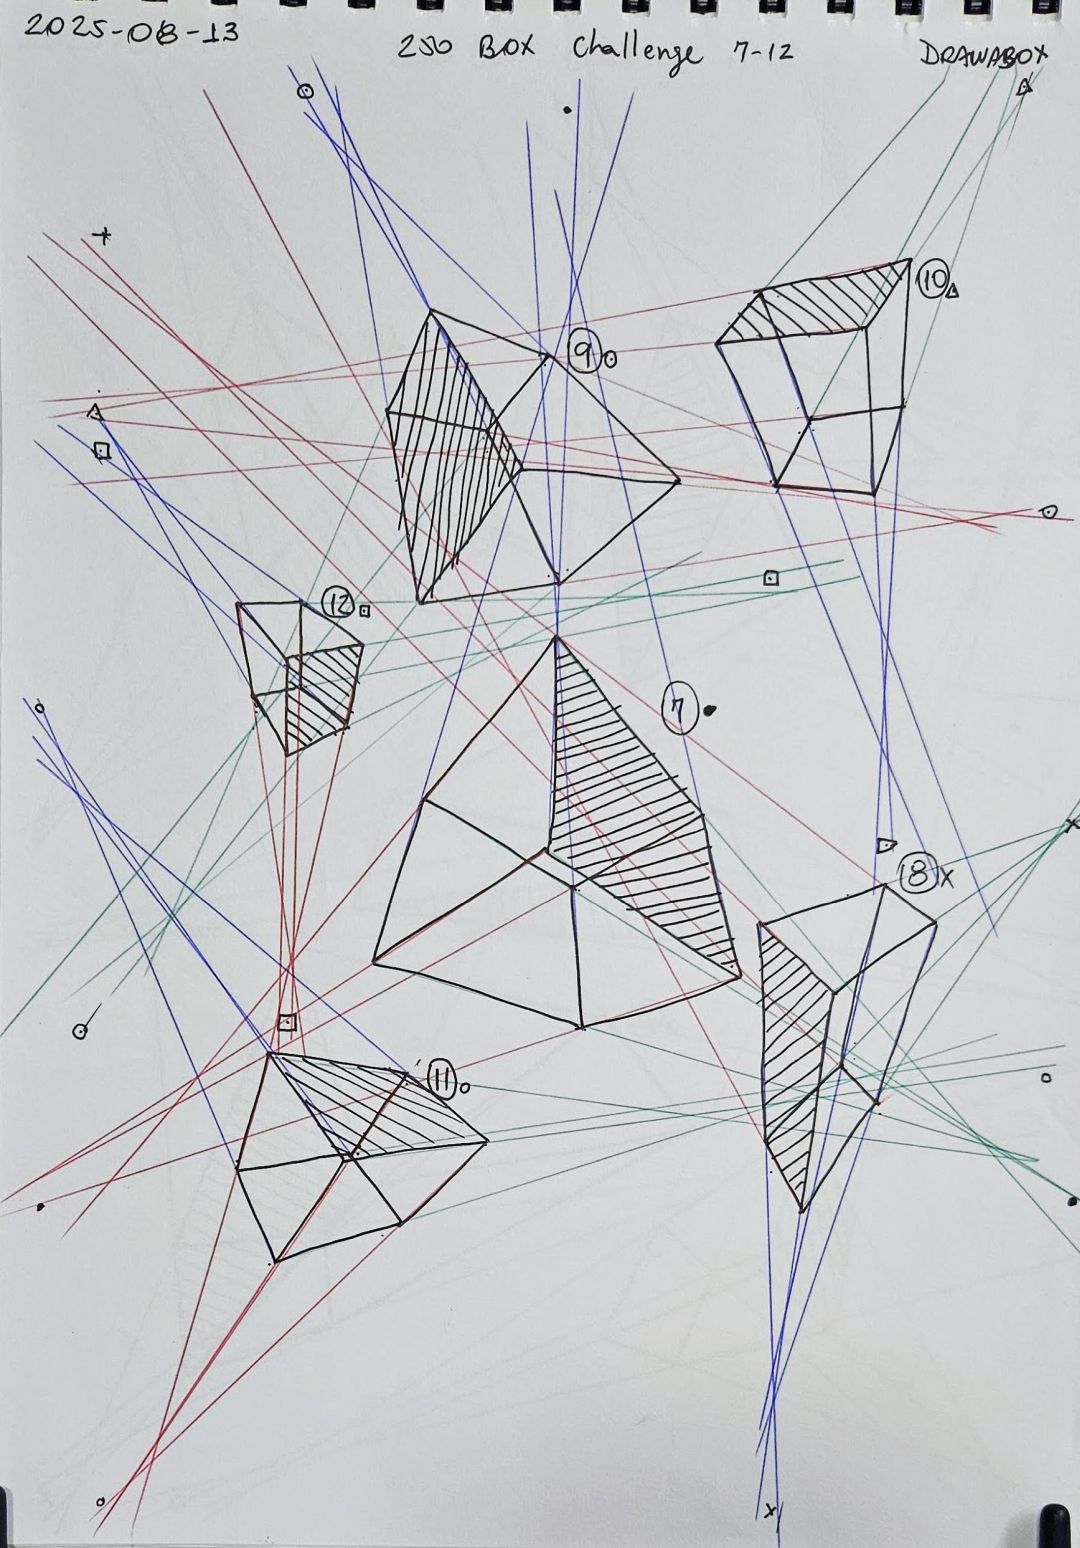 2025-08-13
250 BOX Challenge 7-12
DRAWABOX
10
9
12
7
8
11